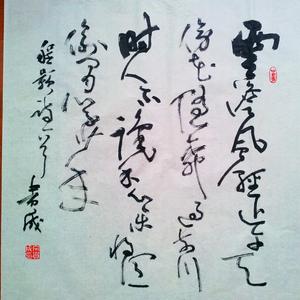 雲淡風輕近午天
傍花隨柳過前川
时人不識余心乐將謂
偷閒學少年
程颢诗一首